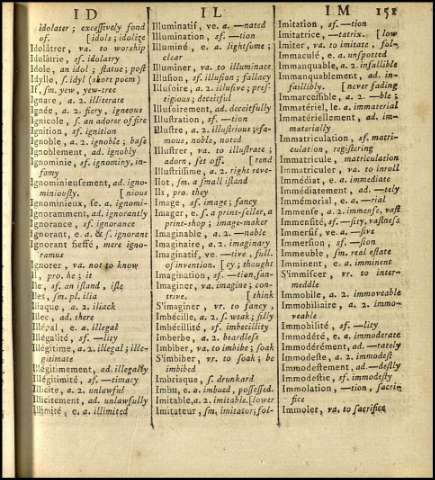 I D
I L
I M 151
idolater; excessively fond
of. [idole; idolize
Idolâtrer, va. to worship
Idolâtrie, sf. idolatry
Idole, an idol; statue; post
Idylle, s. Idyl (short poem)
If, sm. yew, yew-tree
Ignare, a. 2. illiterate
Ignée, a. 2. fiery, igneous
Ignicole, s. an adorer of fire
Ignition, sf. ignition
Ignoble, a. 2. ignoble; base
Ignoblement, ad. ignobly
Ignominie, sf. ignominy, in-
famy
Ignominieusement, ad. igno-
miniously. [nious
Ignominieux, se, a. ignomi-
Ignoramment, ad. ignorantly
Ignorance, sf. ignorance
Ignorant, e. a. & s. ignorant
Ignorant fieffé, mere igno-
ramus
Ignorer, va. not to know
Il, pro. he; it
Ile, sf. an island, isle
Iles, sm. pl. ilia
Iliaque, a. 2. iliack
Illec, ad. there
Illégal, e. a. illegal
Illégalité, sf. —lity
Illégitime, a. 2. illegal; ille-
gitimate
Illégitimement, ad. illegally
Illégitimité, sf. —timacy
Illicite, a. 2. unlawful
Illicitement, ad. unlawfully
Illimité, e. a. illimited
Illuminatif, ve. a. —nated
Illumination, sf. —tion
Illuminé, e. a. lightsome;
clear
Illuminer, va. to illuminate
Illusion, sf. illusion; fallacy
Illusoire, a. 2. illusive; pres-
tigious; deceitful
Illusoirement, ad. deceitfully
Illustration, sf. —tion
Illustre, a. 2. illustrious; fa-
mous, noble, noted
Illustrer, va. to illustrate;
adorn, set off. [rend
Illustrissime, a. 2. right reve-
Ilot, sm. a small island
Ils, pro. they
Image, sf. image; fancy
Imager, e. s. a print-seller, a
print-shop; image-maker
Imaginable, a. 2. —nable
Imaginaire, a. 2. imaginary
Imaginatif, ve. —tive, full
of invention. [cy; thought
Imagination, sf. —tion, fan-
Imaginer, va. imagine; con-
trive. [think
S'imaginer, vr. to fancy,
Imbécille, a. 2. s. weak; silly
Imbécillité, sf. imbecility
Imberbe, a. 2. beardless
Imbiber, va. to imbibe; soak
S'imbiber, vr. to soak; be
imbibed
Imbriaque, s. drunkard
Imbu, e. a. imbued, possessed.
Imitable, a. 2. imitable. [lower
Imitateur, sm. imitator; fol-
Imitation, sf. —tion
Imitatrice, —tatrix. [low
Imiter, va. to imitate; fol-
Immaculé, e. a. unspotted
Immanquable, a. 2. infallible
Immanquablement, ad. in-
faillibly. [never fading
Immarcessible, a. 2. —ble;
Immatériel, le. a. immaterial
Immatériellement, ad. im-
materially
Immatriculation, sf. matri-
culation, registering
Immatricule, matriculation
Immatriculer, va. to inroll
Immédiat, e. a. immediate
Immédiatement, ad. —tely
Immémorial, e. a. —rial
Immense, a. 2. immense, vast
Immensité, sf. —sity, vastness
Immersif, ve. a. —sive
Immersion, sf. —sion
Immeuble, sm. real estate
Imminent, e. a. imminent
S'immiscer, vr. to inter-
meddle
Immobile, a. 2. immoveable
Immobiliaire, a. 2. immo-
veable
Immobilité, sf. —lity
Immodéré, e. a. immoderate
Immodérément, ad. —rately
Immodeste, a. 2. immodest
Immodestement, ad. —destly
Immodestie, sf. immodesty
Immolation, —tion, sacri-
fice
Immoler, va. to sacrifice